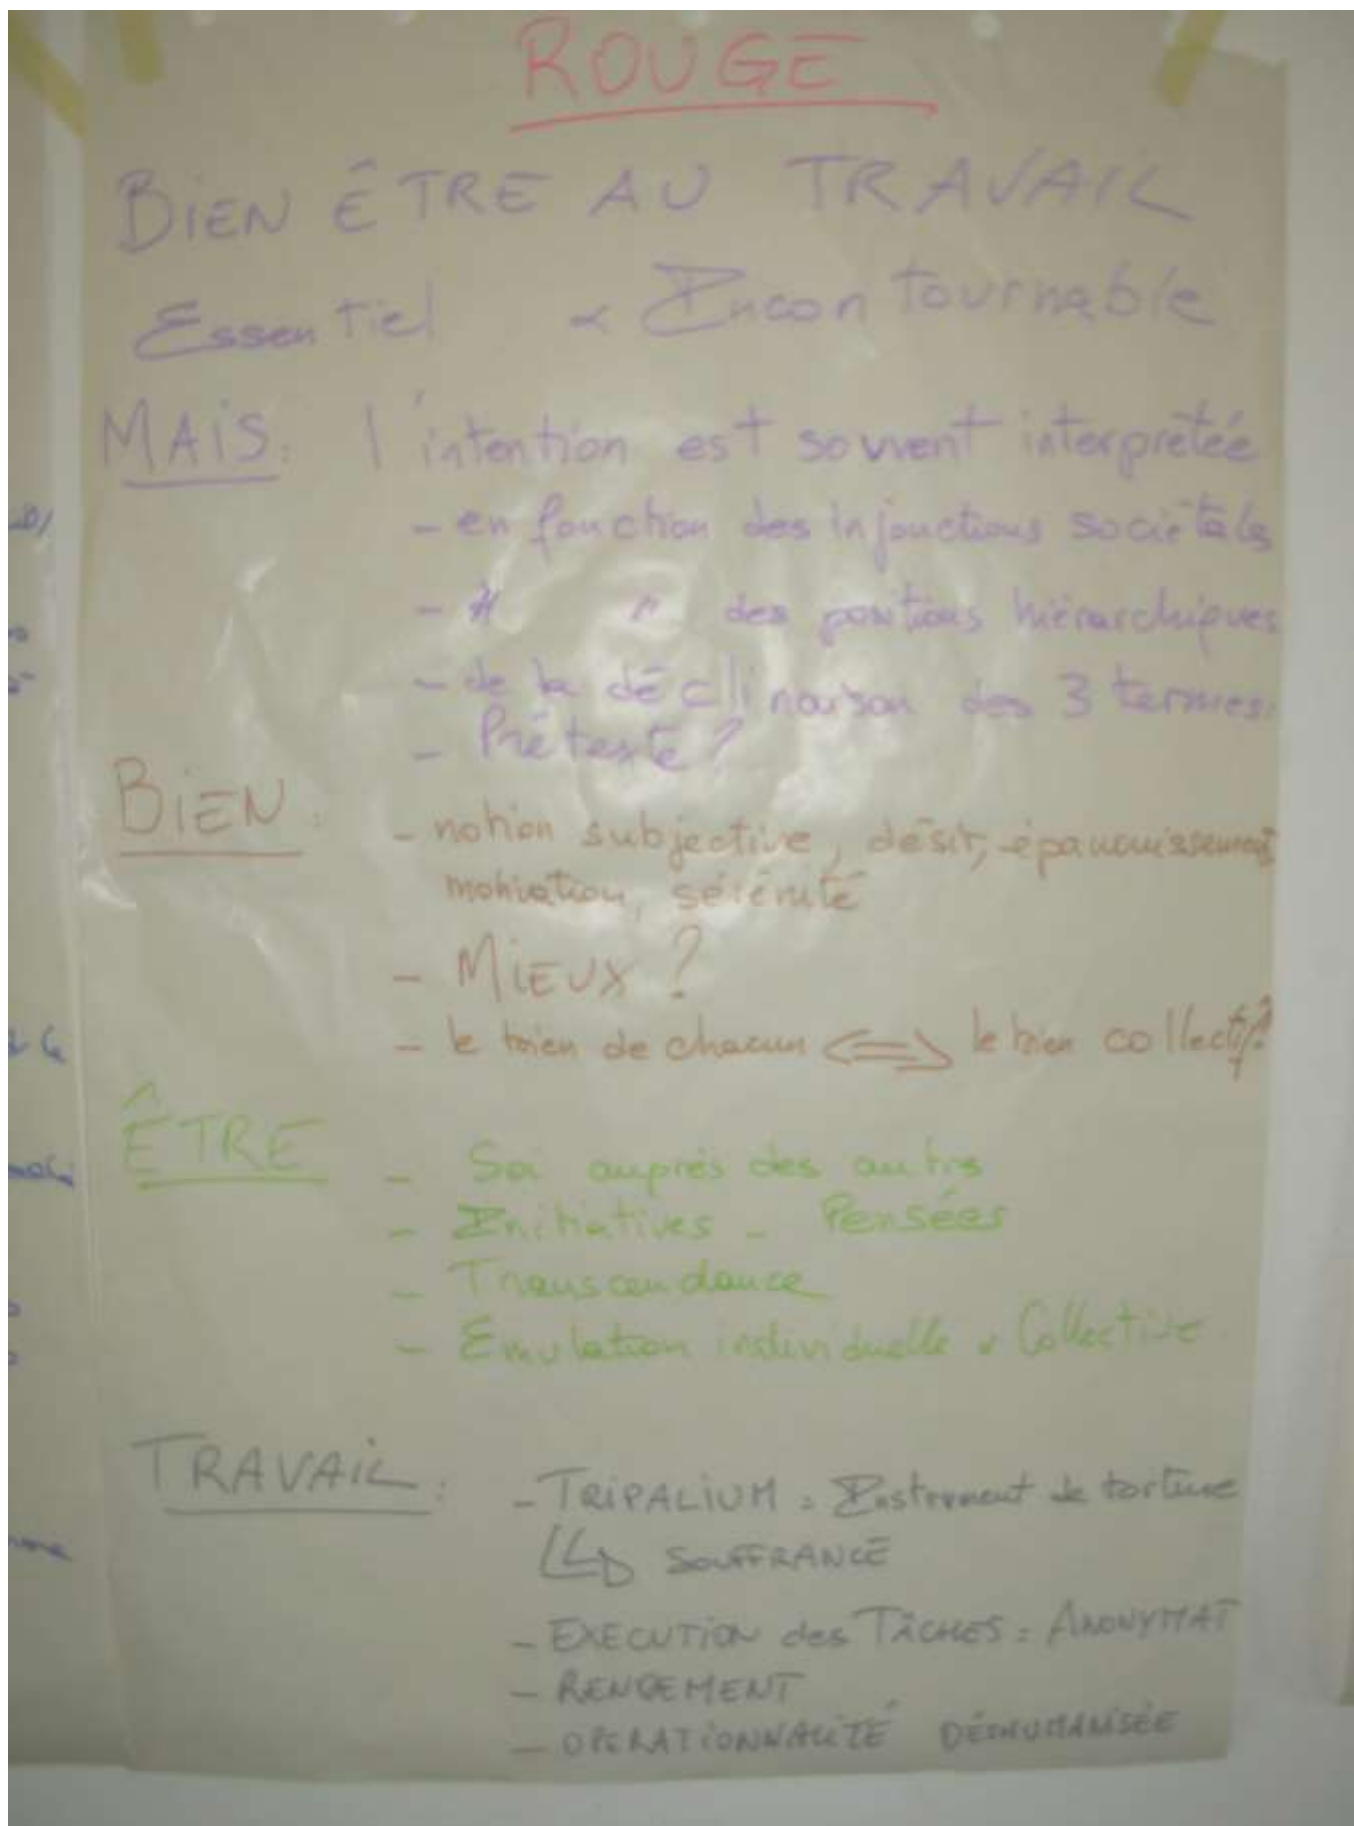 ROUGE
BiEN ÊTRE AU TRAVAIL
Essentiel & Incontournable
MAiS: l'intention est souvent interprétée
- en fonction des injonctions sociétales
- " " des positions hiérarchiques
- de la déclinaison des 3 termes.
- Prétexte?
BiEN: - notion subjective, désir, épanouissement
motivation, sérénité
- MiEUX?
- le bien de chacun <=> le bien collectif?
ÊTRE - Soi auprès des autres
- Initiatives - Pensées
- Transcendance
- Emulation individuelle & Collective
TRAVAiL: - TRiPALiUM = Instrument de torture
SOUFFRANCE
- EXECUTiON des TÂCHES = ANONYMAT
- RENDEMENT
- OPERATiONNALiTÉ DÉSHUMANiSÉE